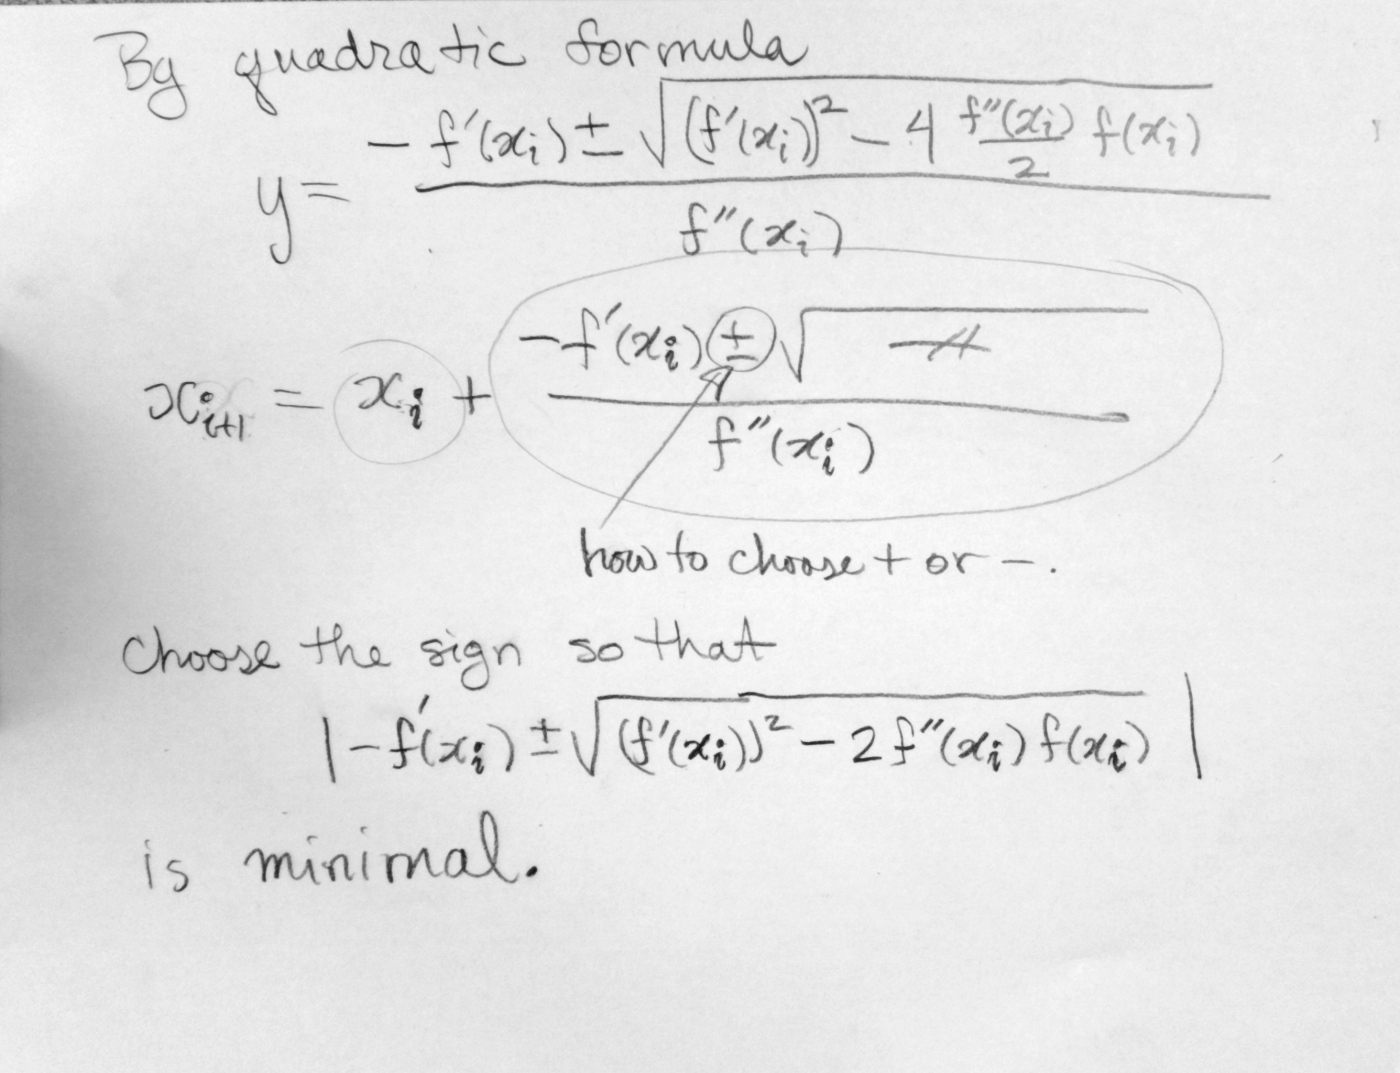 By quadratic formula
y = (-f'(xᵢ) ± √((f'(xᵢ))² - 4 (f''(xᵢ)/2) f(xᵢ))) / f''(xᵢ)
xᵢ₊₁ = xᵢ + (-f'(xᵢ) ± √( —〃— )) / f''(xᵢ)
how to choose + or -.
Choose the sign so that
|-f'(xᵢ) ± √((f'(xᵢ))² - 2f''(xᵢ) f(xᵢ))|
is minimal.